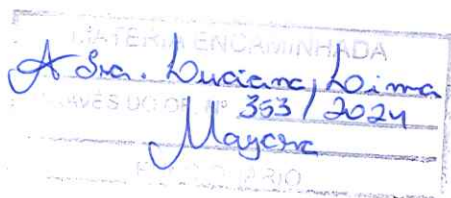 MATÉRIA ENCAMINHADA
A Sra. Luciana Lima
AVÉS DO OF. Nº 353 / 2024
Mayara